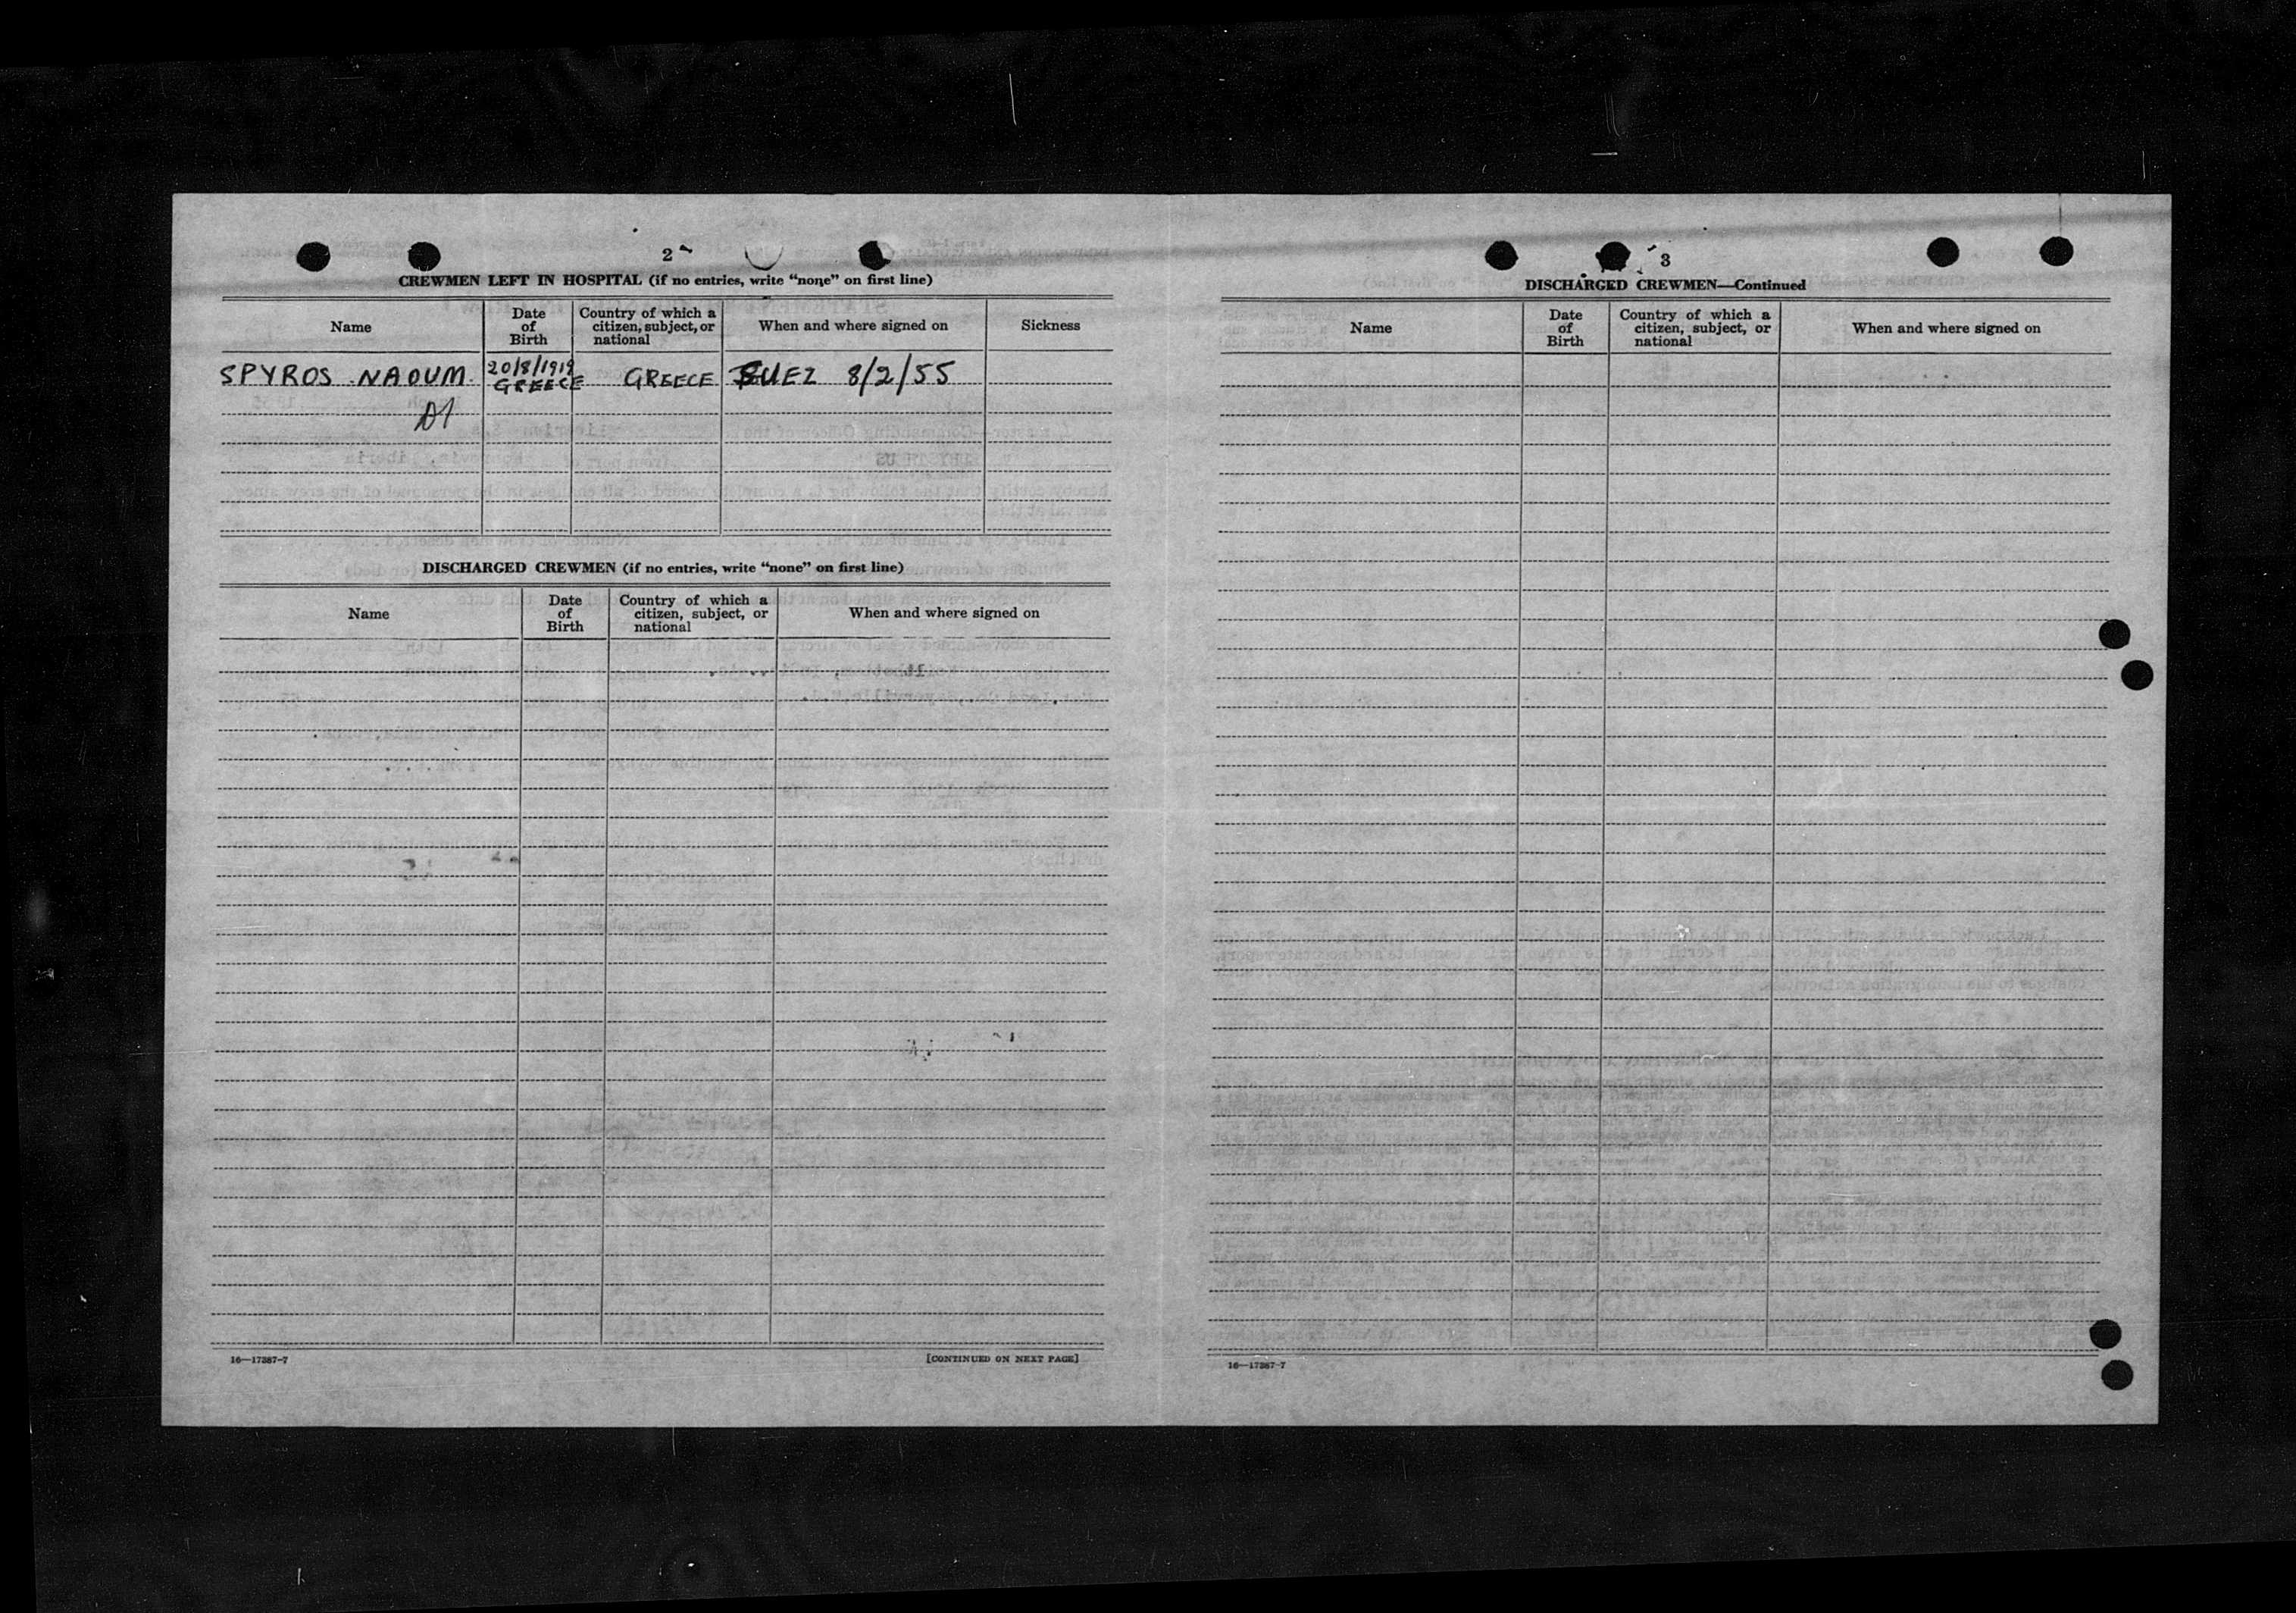 2
CREWMEN LEFT IN HOSPITAL (if no entries, write “none” on first line)
Name
Date of Birth
Country of which a citizen, subject, or national
When and where signed on
Sickness
SPYROS NAOUM
20/8/1919 GREECE
GREECE
SUEZ 8/2/55
DISCHARGED CREWMEN (if no entries, write “none” on first line)
Name
Date of Birth
Country of which a citizen, subject, or national
When and where signed on
16—17387-7
[CONTINUED ON NEXT PAGE]
3
DISCHARGED CREWMEN—Continued
Name
Date of Birth
Country of which a citizen, subject, or national
When and where signed on
16—17387-7